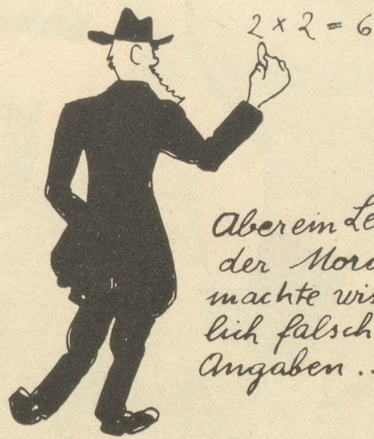 2 x 2 = 6
Aber ein Le
der Mora
machte wis
lich falsch
Angaben ..